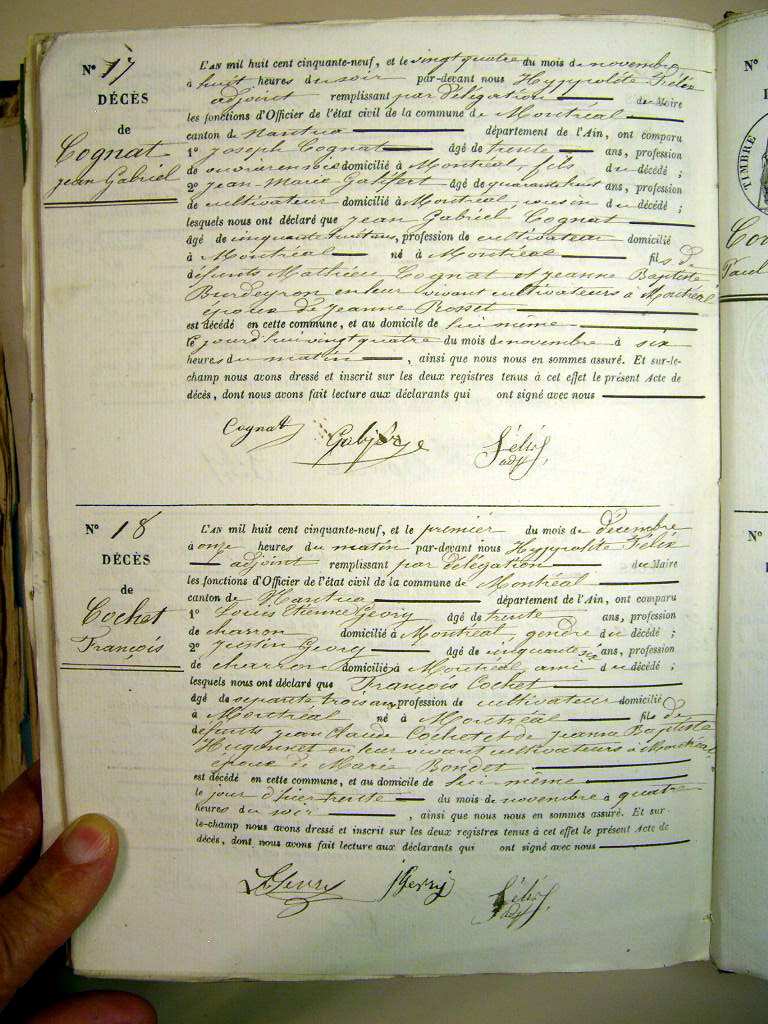 N° 17
DÉCÈS
de
Cognat
jean Gabriel
L'AN mil huit cent cinquante-neuf, et le vingt quatre du mois de novembre
à huit heures du soir par-devant nous Hyppolite Félix
adjoint remplissant par délégation du Maire
les fonctions d'Officier de l'état civil de la commune de Montréal
canton de Nantua département de l'Ain, ont comparu
1° joseph Cognat âgé de trente ans, profession
de domicilié à Montréal, fils du décédé ;
2° jean-Marie âgé de quarante huit ans, profession
de cultivateur domicilié à Montréal, cousin du décédé ;
lesquels nous ont déclaré que jean Gabriel Cognat
âgé de cinquante ans, profession de cultivateur domicilié
à Montréal né à Montréal fils de
défunts Mathieu Cognat et jeanne Baptiste
Burdeyron en leur vivant cultivateurs à Montréal
époux de jeanne Rosset
est décédé en cette commune, et au domicile de lui même
le jourd'hui vingt quatre du mois de novembre à six
heures du matin, ainsi que nous nous en sommes assuré. Et sur-le-
champ nous avons dressé et inscrit sur les deux registres tenus à cet effet le présent Acte de
décès, dont nous avons fait lecture aux déclarants qui ont signé avec nous
Cognat Félix
adj.
N° 18
DÉCÈS
de
Cochet
François
L'AN mil huit cent cinquante-neuf, et le premier du mois de décembre
à onze heures du matin par-devant nous Hyppolite Félix
adjoint remplissant par délégation du Maire
les fonctions d'Officier de l'état civil de la commune de Montréal
canton de Nantua département de l'Ain, ont comparu
1° Louis Etienne Gevry âgé de trente ans, profession
de charron domicilié à Montréal, gendre du décédé ;
2° Justin Gevry âgé de cinquante six ans, profession
de charron domicilié à Montréal, ami du décédé ;
lesquels nous ont déclaré que François Cochet
âgé de septante trois ans, profession de cultivateur domicilié
à Montréal né à Montréal fils de
défunts jean Claude Cochet et de jeanne Baptiste
Hugonnet en leur vivant cultivateurs à Montréal
époux de Marie Bondet
est décédé en cette commune, et au domicile de lui-même
le jour d'hier trente du mois de novembre à quatre
heures du soir, ainsi que nous nous en sommes assuré. Et sur
le-champ nous avons dressé et inscrit sur les deux registres tenus à cet effet le présent Acte de
décès, dont nous avons fait lecture aux déclarants qui ont signé avec nous
Gevry Félix
adj.
N°
TIMBRE
N°